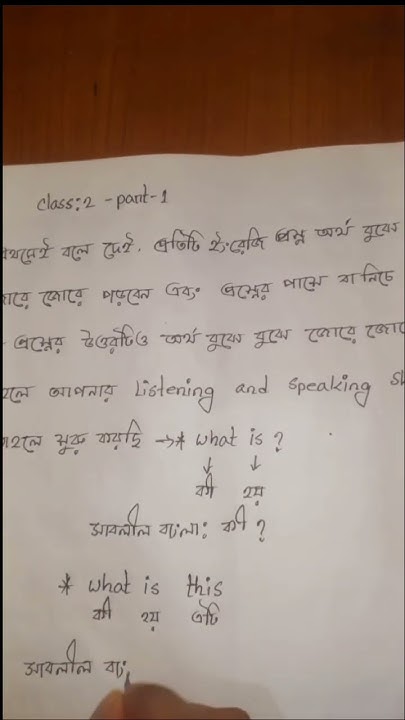 Class:2 - part-1
প্রথমেই বলে দেই. প্রতিটি ইংরেজি প্রশ্ন অর্থ বুঝে
জোরে জোরে পড়বেন এবং প্রশ্নের পাশে বা নিচে
প্রশ্নের উত্তরটিও অর্থ বুঝে বুঝে জোরে
আপনার Listening and speaking
শুরু করছি →* what is ?
↓ ↓
কী হয়
সাবলীল বাংলা: কী ?
* what is this
কী হয় এটি
সাবলীল বাং